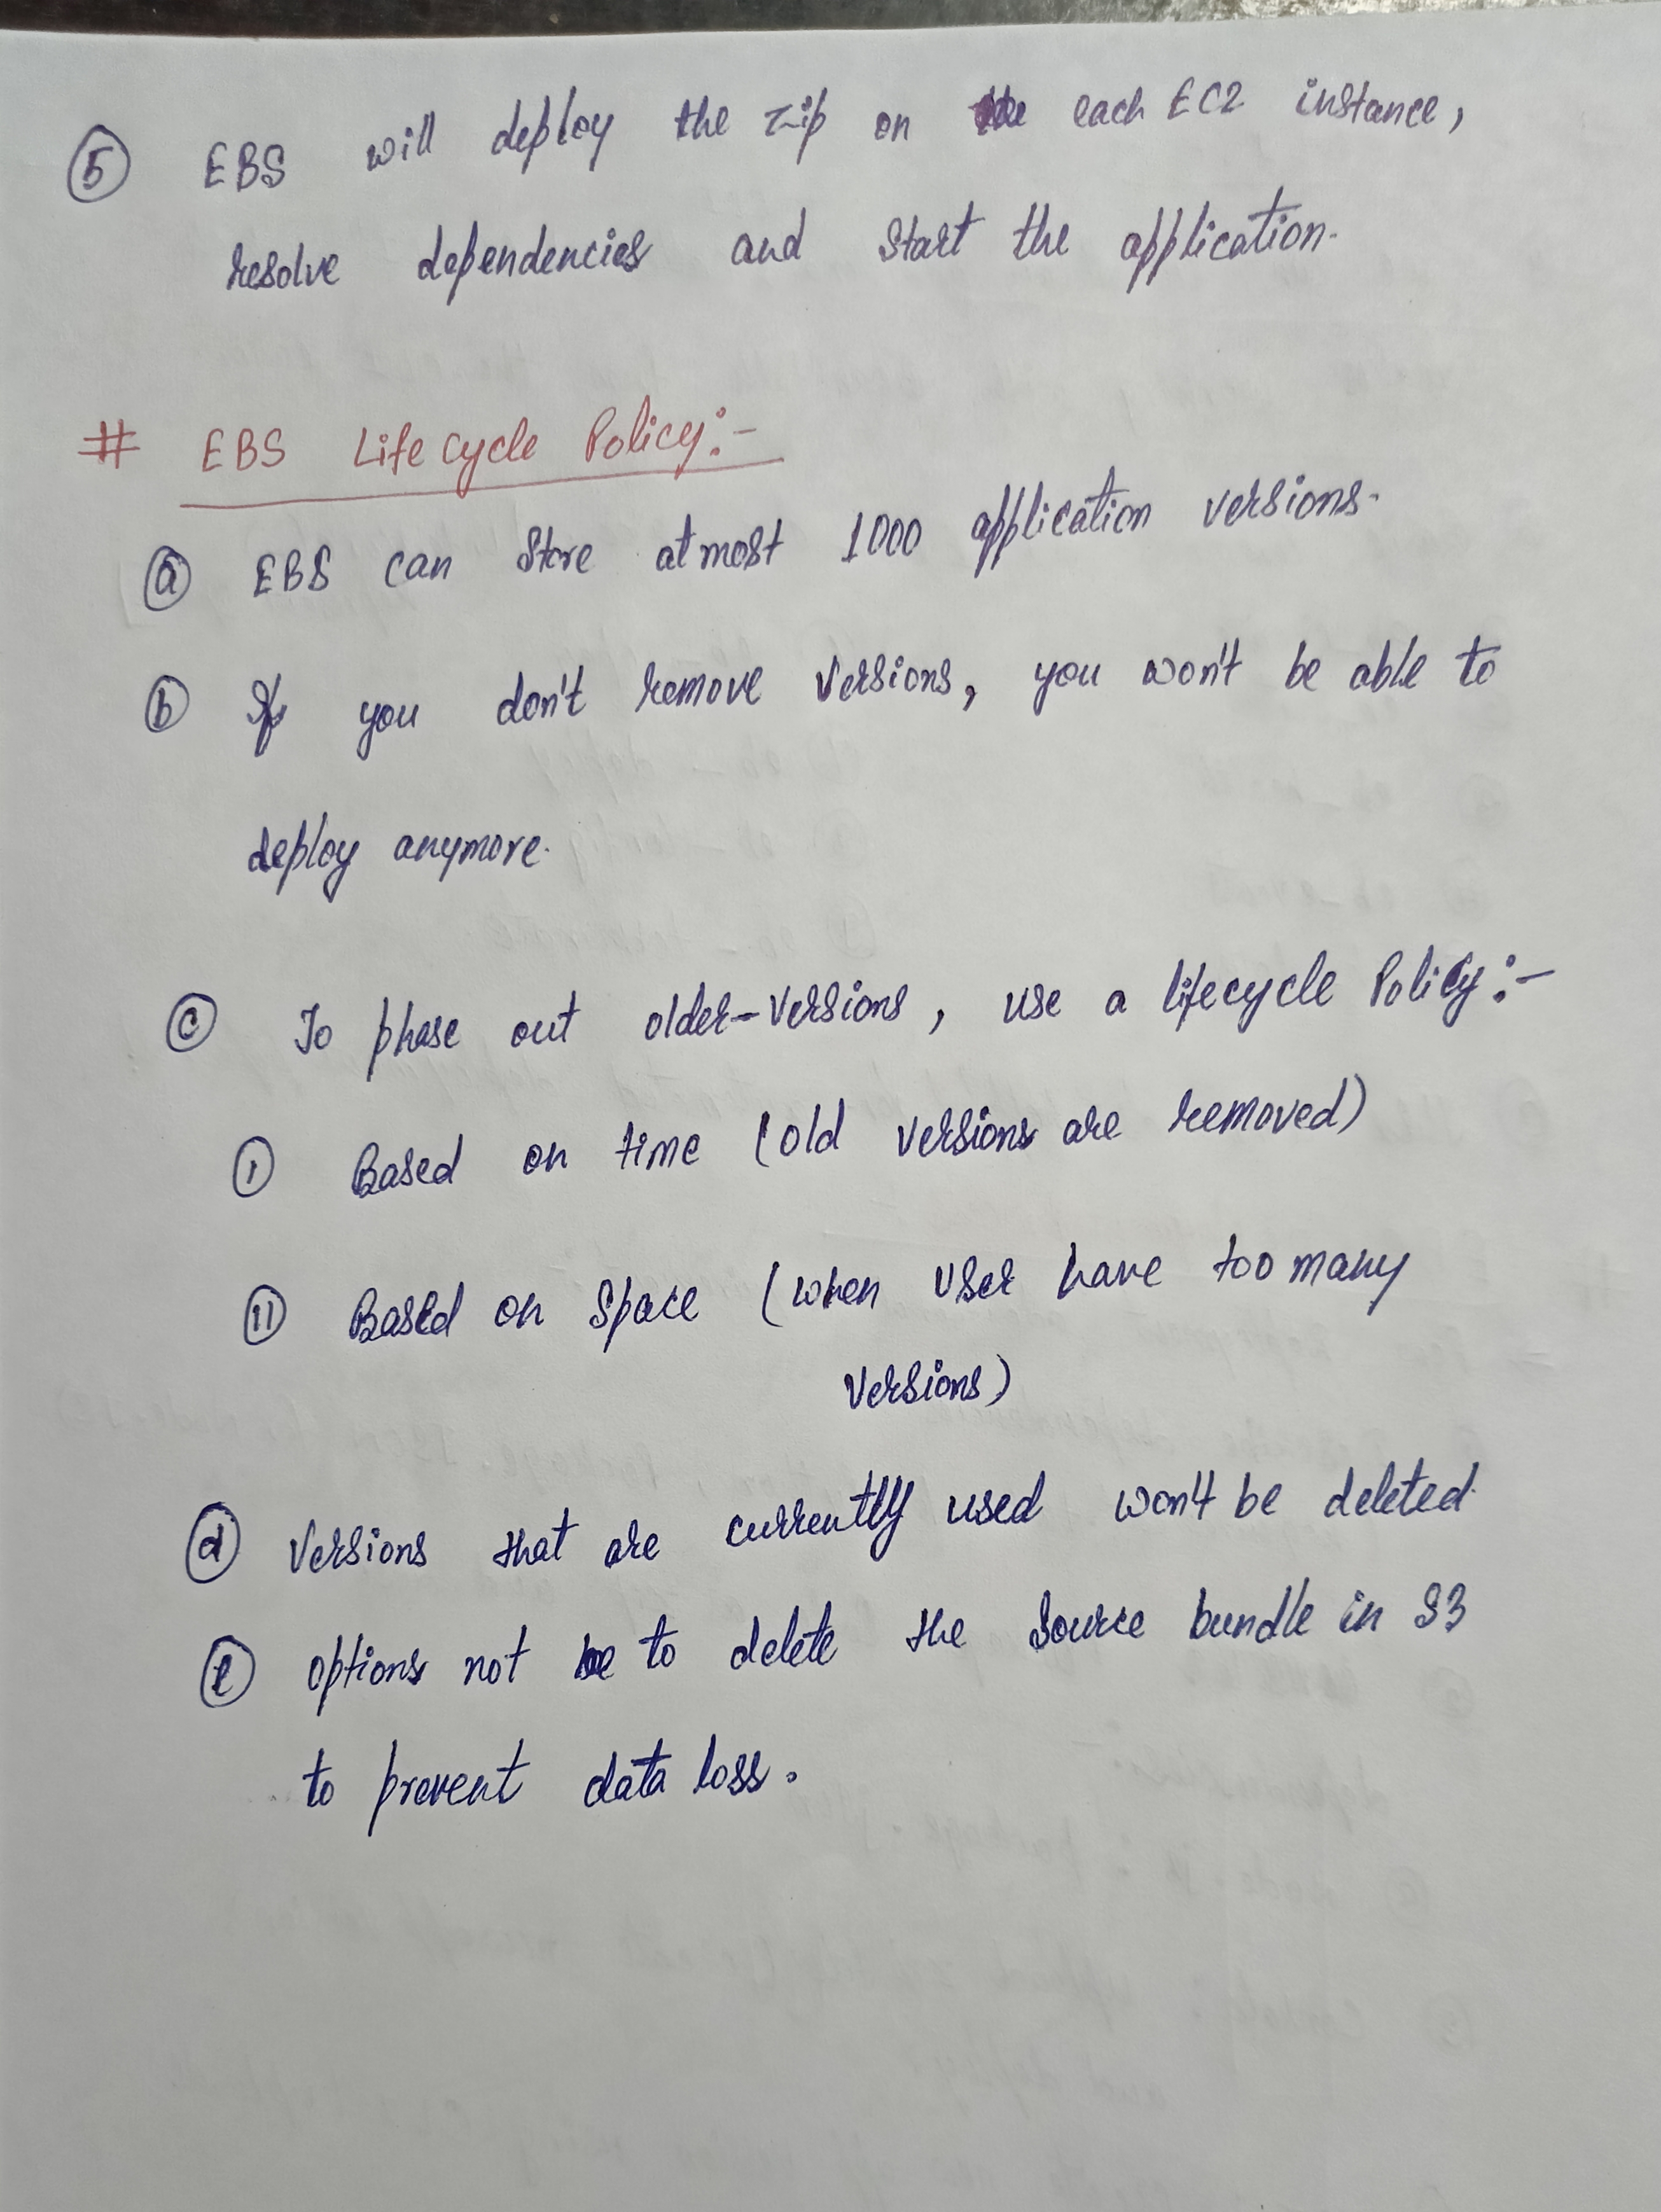 5 EBS will deploy the zip on each EC2 instance,
resolve dependencies and start the application.
# EBS Life cycle Policy:-
a EBS can store atmost 1000 application versions.
b If you don't remove versions, you won't be able to
deploy anymore.
c To phase out older-versions, use a lifecycle Policy:-
i Based on time (old versions are removed)
ii Based on space (when user have too many
versions)
d Versions that are currently used won't be deleted.
e options not to delete the source bundle in S3
to prevent data loss.